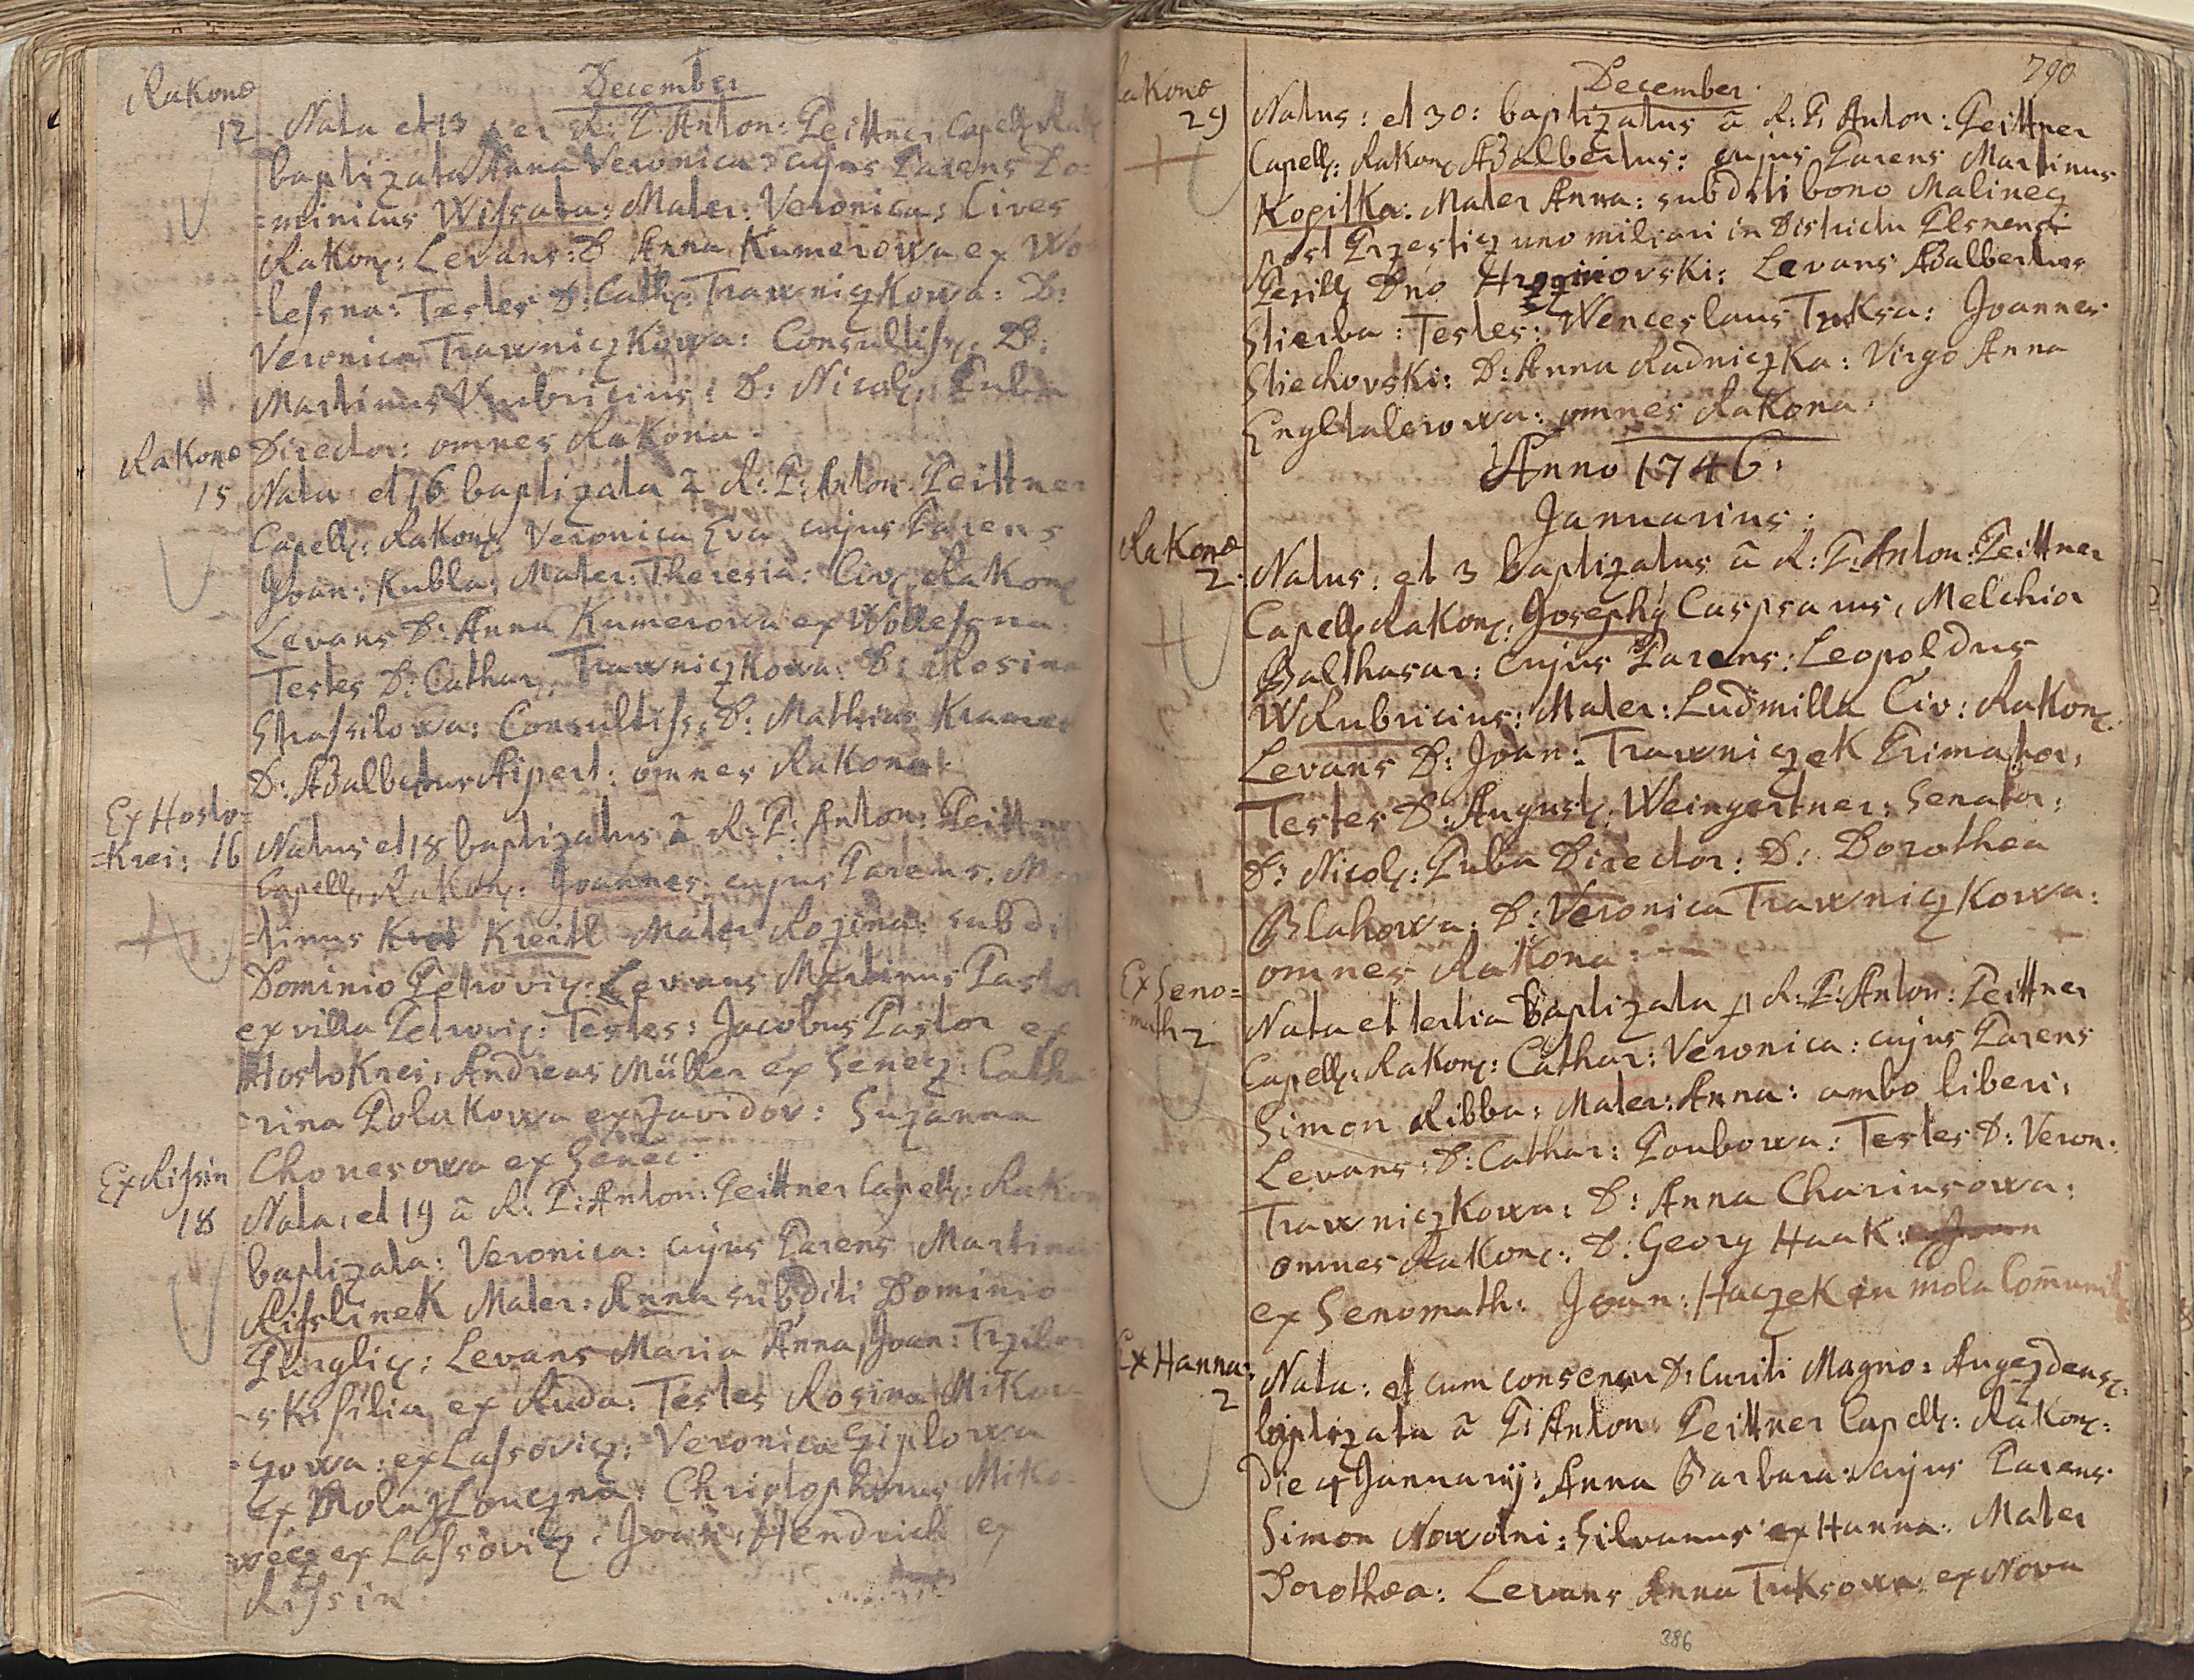 December
Rakonæ
12 Nata et 13 per R: P: Anton: Peittner Capell: Rak
baptizata Anna Veronica: cujus Parens Do=
=minicus Wissata: Mater: Veronica: Cives
Rakon: Levans: D: Anna Kumerowa ex Wo
lessna: Testes D: Cath: Trawniczkowa: D:
Veronica Trawniczkowa: Consultiss: D:
Martinus Wrubricius: D: Nicol: Puba
Director: omnes Rakona.
Rakonæ
15 Nata et 16 baptizata â R: P: Anton: Peittner
Capell: Rakon: Veronica Eva cujus Parens
Joan: Kubla: Mater: Theresia: Civ: Rakon
Levans D: Anna Kumerowa ex Wollessna:
Testes D: Cathar: Trawniczkowa: D: Rosina
Strassilowa: Consultiss: D: Mathias Kramer
D: Adalbertus Aipert: omnes Rakona.
Ex Hosto=
=krei: 16 Natus et 18 baptizatus â R: P: Anton: Peittner
Capell: Rakon: Joannes: cujus Parens: Mar
=tinus Kreitl Mater Rozina: subdi
Dominio Petrovic: Levans Martinus Pastor
ex villa Petrovic: Testes: Jacobus Pastor ex
Hostokrei, Andreas Müller ex Senecz: Catha
=rina Polakowa ex Zavidov: Suzanna
Chonesowa ex Senec:
Ex Rissin
18 Nata: et 19 â R: P: Anton: Peittner Capell: Rakon
baptizata: Veronica: cujus Parens Martinu
Risslinek Mater: Anna subditi Dominio
Pürglic: Levans Maria Anna Joan: Trziber
=ski filia ex Ruda: Testes Rosina Mikow=
=zowa: ex Lassovicz: Veronica Cziplowa
ex Mola Lonczna: Christophorus Miko=
=wecz ex Lassovicz: Joan: Hendrich ex
Rissin.
790
December.
Rakonæ
29 Natus: et 30: baptizatus â R: P: Anton: Peittner
Capell: Rakon: Adalbertus: cujus Parens Martinus
Kopitka: Mater Anna: subditi bono Malinecz
post Przesticz uno miliari in Districtu Plsnensi
Perill: Dno Levans Adalbertus
Stierba: Testes: Wenceslaus Tuksa: Joannes
Stiechovski: D: Anna Radniczka: Virgo Anna
Engltalerowa: omnes Rakona.
Anno 1746:
Januarius:
Rakonæ
2. Natus: et 3 baptizatus â R: P: Anton: Peittner
Capell: Rakon: Josephg Casparus, Melchior
Balthasar: cujus Parens: Leopoldus
WRubricius: Mater: Ludmilla Civ: Rakon:
Levans D: Joan: Trawniczek Primator:
Testes D: August: Weingartner: Senator:
D: Nicol: Puba Director: D: Dorothea
Blahowa: D: Veronica Trawniczkowa:
omnes Rakona:
Ex Seno=
=math 2 Nata et tertia Baptizata p R: P: Anton: Peittner
Capell: Rakon: Cathar: Veronica: cujus Parens
Simon Ribba: Mater: Anna: ambo liberi:
Levans: D: Cathar: Poubowa: Testes D: Veron:
Trawniczkowa: D: Anna Chariusowa:
omnes Rakonc: D: Georg Haak:
ex Senomath: Joan: Haczek in mola Com̄unit
Ex Hanna:
2 Nata: et cum consensu D: Curiti Magno: Augezdens:
baptizata â P: Anton: Peittner Capell: Rakon:
die 4 Januarij: Anna Barbara: cujus Parens
Simon Nowotni: Silvanus ex Hanna: Mater
Dorothea: Levans Anna Tuksowa ex Nova
386